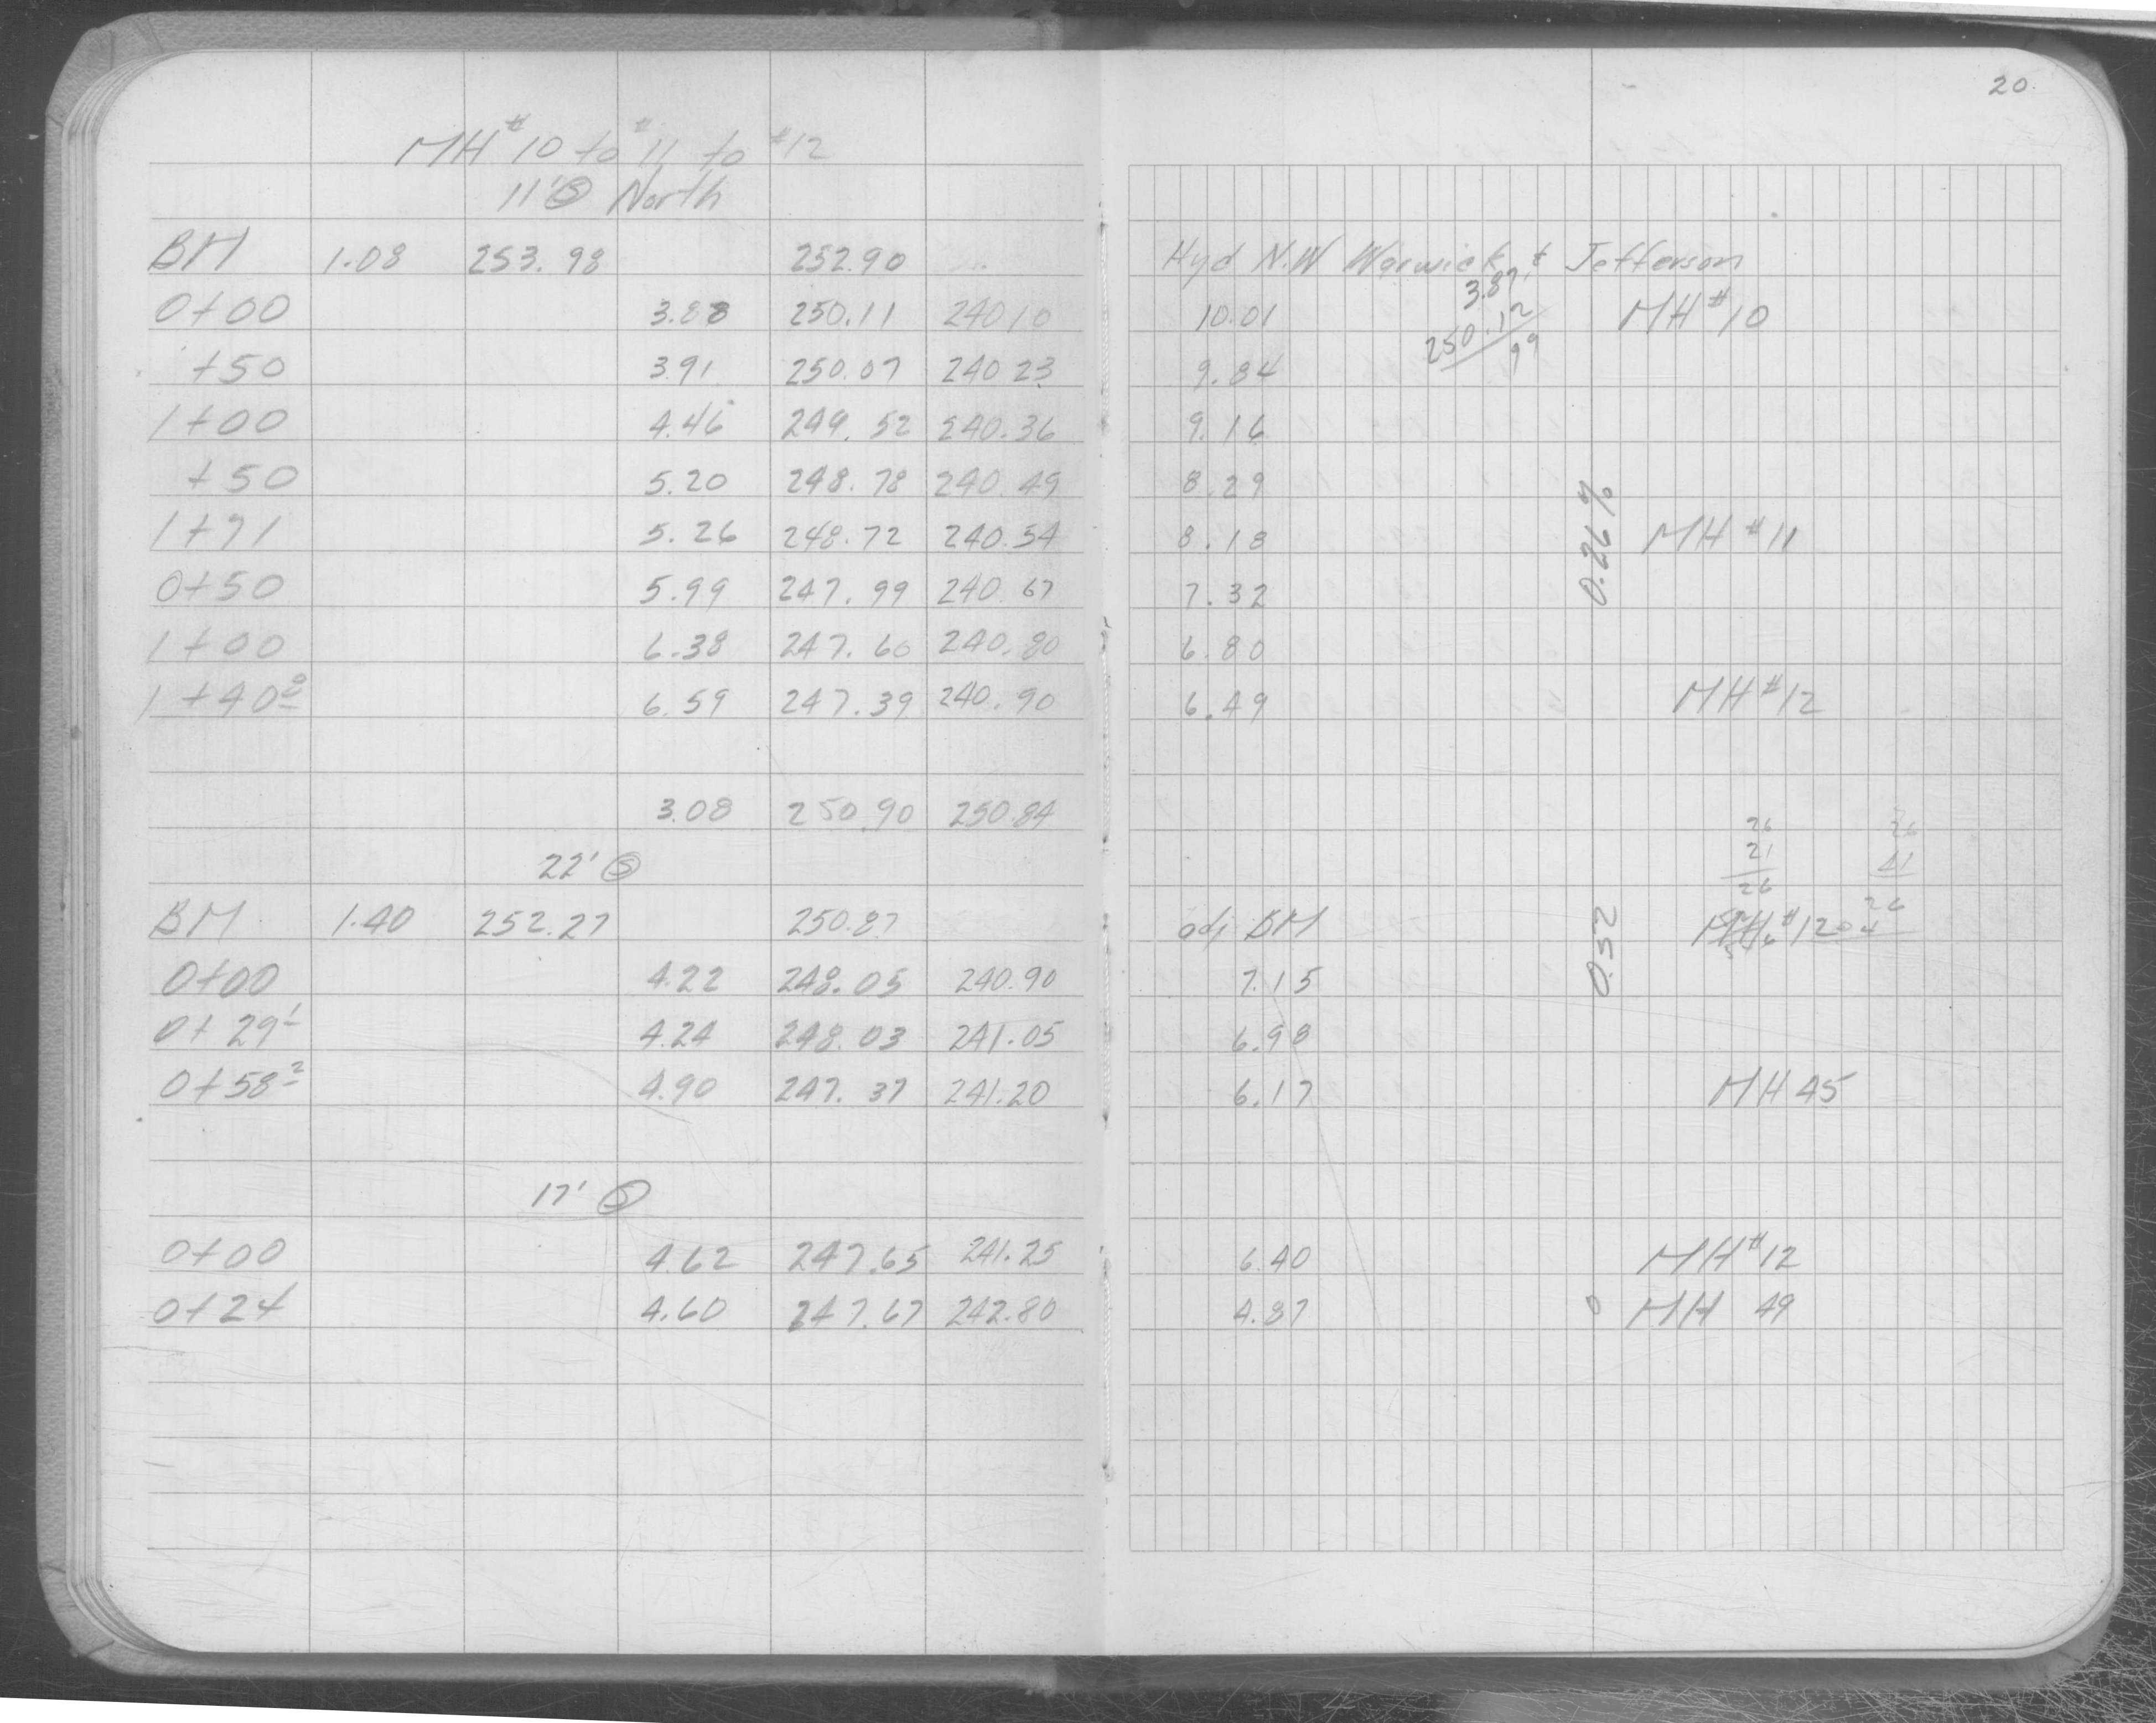 20
MH #10 to #11 to #12
11' Ⓢ North
BM 1.08 253.98 252.90 Hyd N.W Warwick & Jefferson
0+00 3.88 250.11 240 10 10.01 3.87 MH #10
250.12
99
+50 3.91 250.07 240 23 9.84
1+00 4.46 249.52 240.36 9.16
+50 5.20 248.78 240.49 8.29
0.26%
1+71 5.26 248.72 240.54 8.18 MH #11
0+50 5.99 247.99 240.67 7.32
1+00 6.38 247.60 240.80 6.80
1+40 0 6.59 247.39 240.90 6.49 MH #12
3.08 250.90 250.84
26
21 41
26 26
22' Ⓢ
BM 1.40 252.27 250.87 adj BM MH #12
0.52
0+00 4.22 248.05 240.90 7.15
0+29 1 4.24 248.03 241.05 6.98
0+58 2 4.90 247.37 241.20 6.17 MH 45
17' Ⓢ
0+00 4.62 247.65 241.25 6.40 MH #12
0+24 4.60 247.67 242.80 4.87 0 MH 49